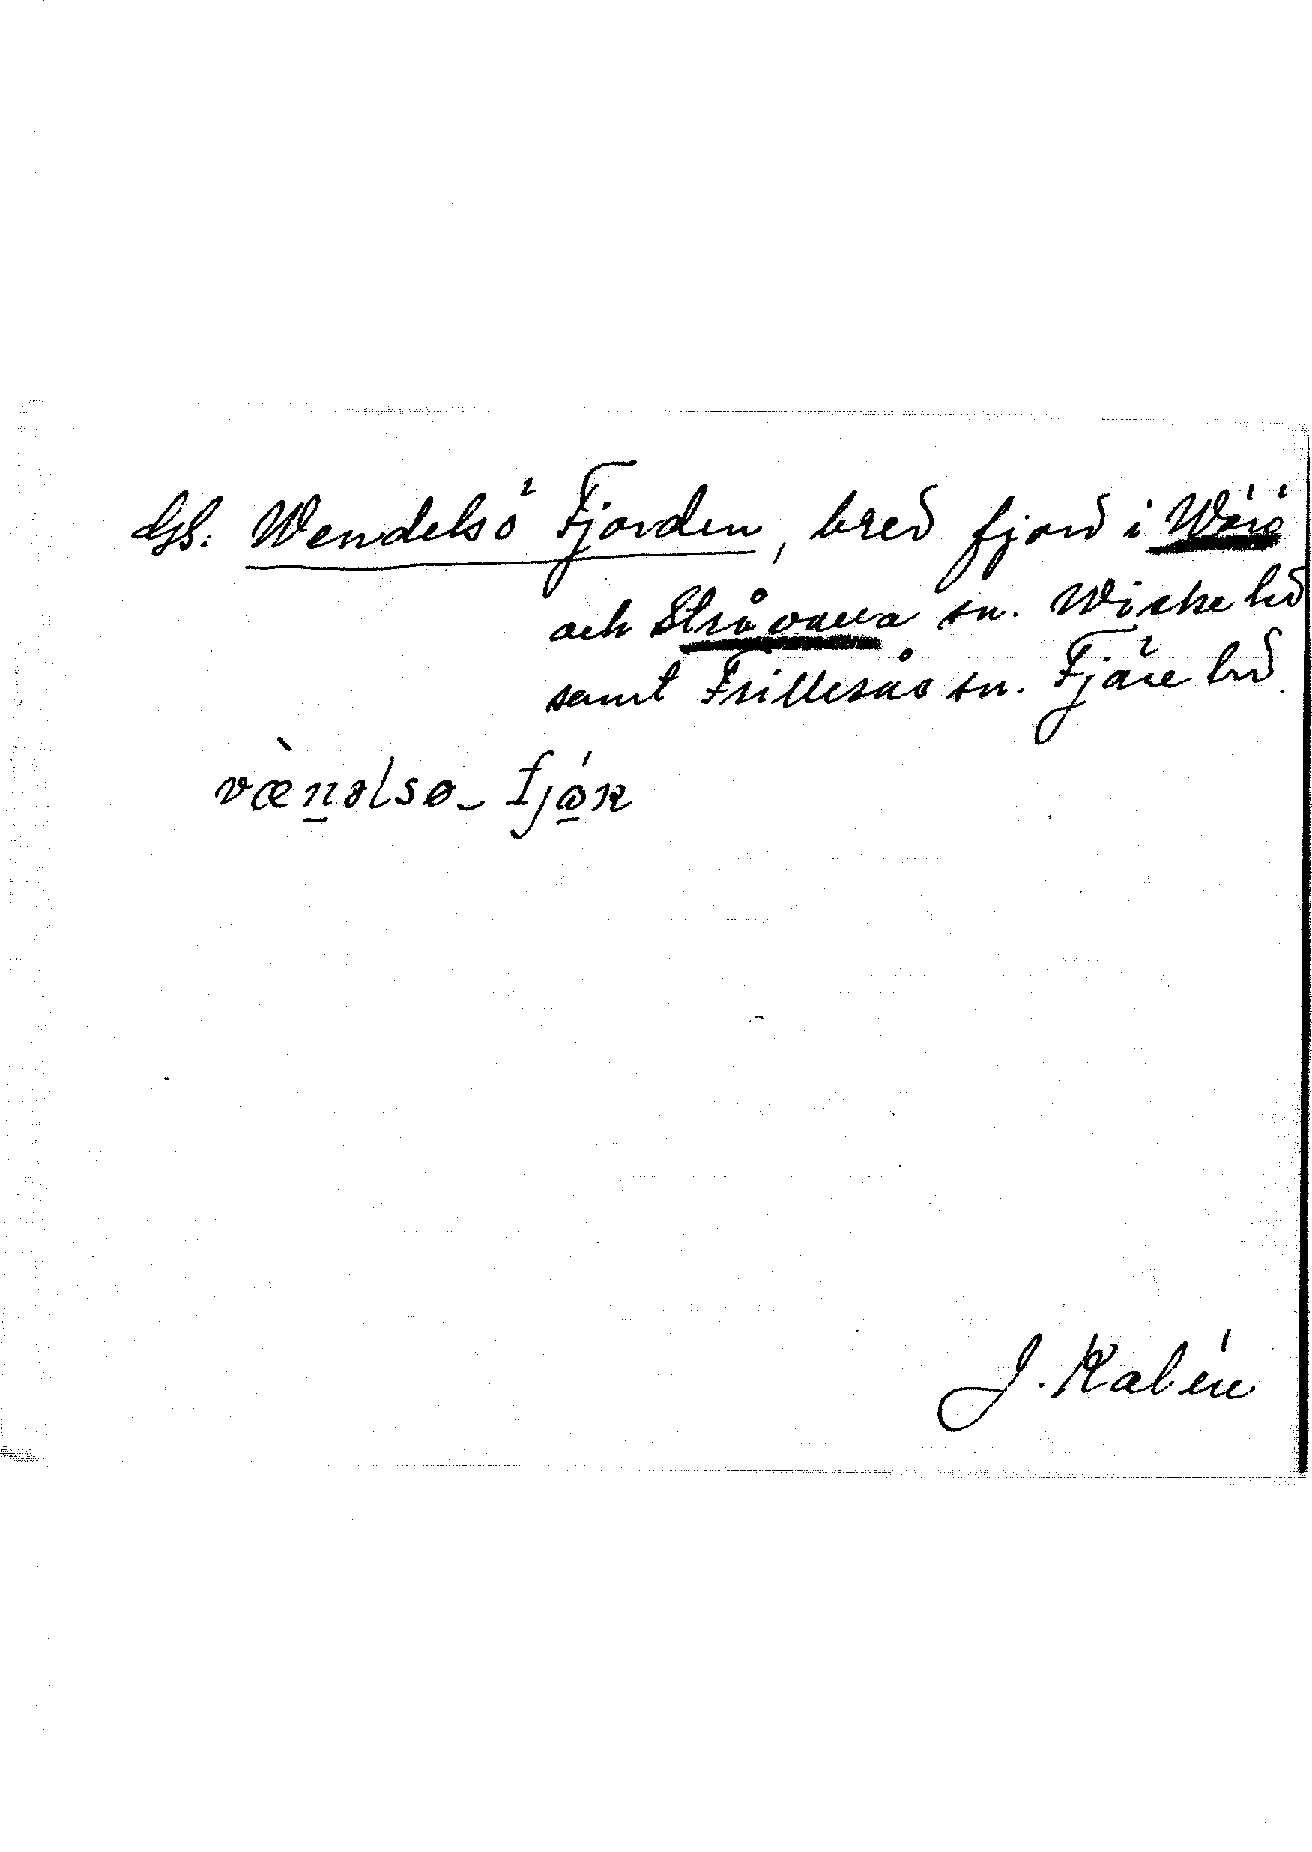 Wendelsö Fjorden, bred fjord i Wärö
och Stråvalla sn. Wiske hd
samt Frillesås sn. Fjäre hd.
væ̀n̲əlsø- fjώ̲r
J. Kalén